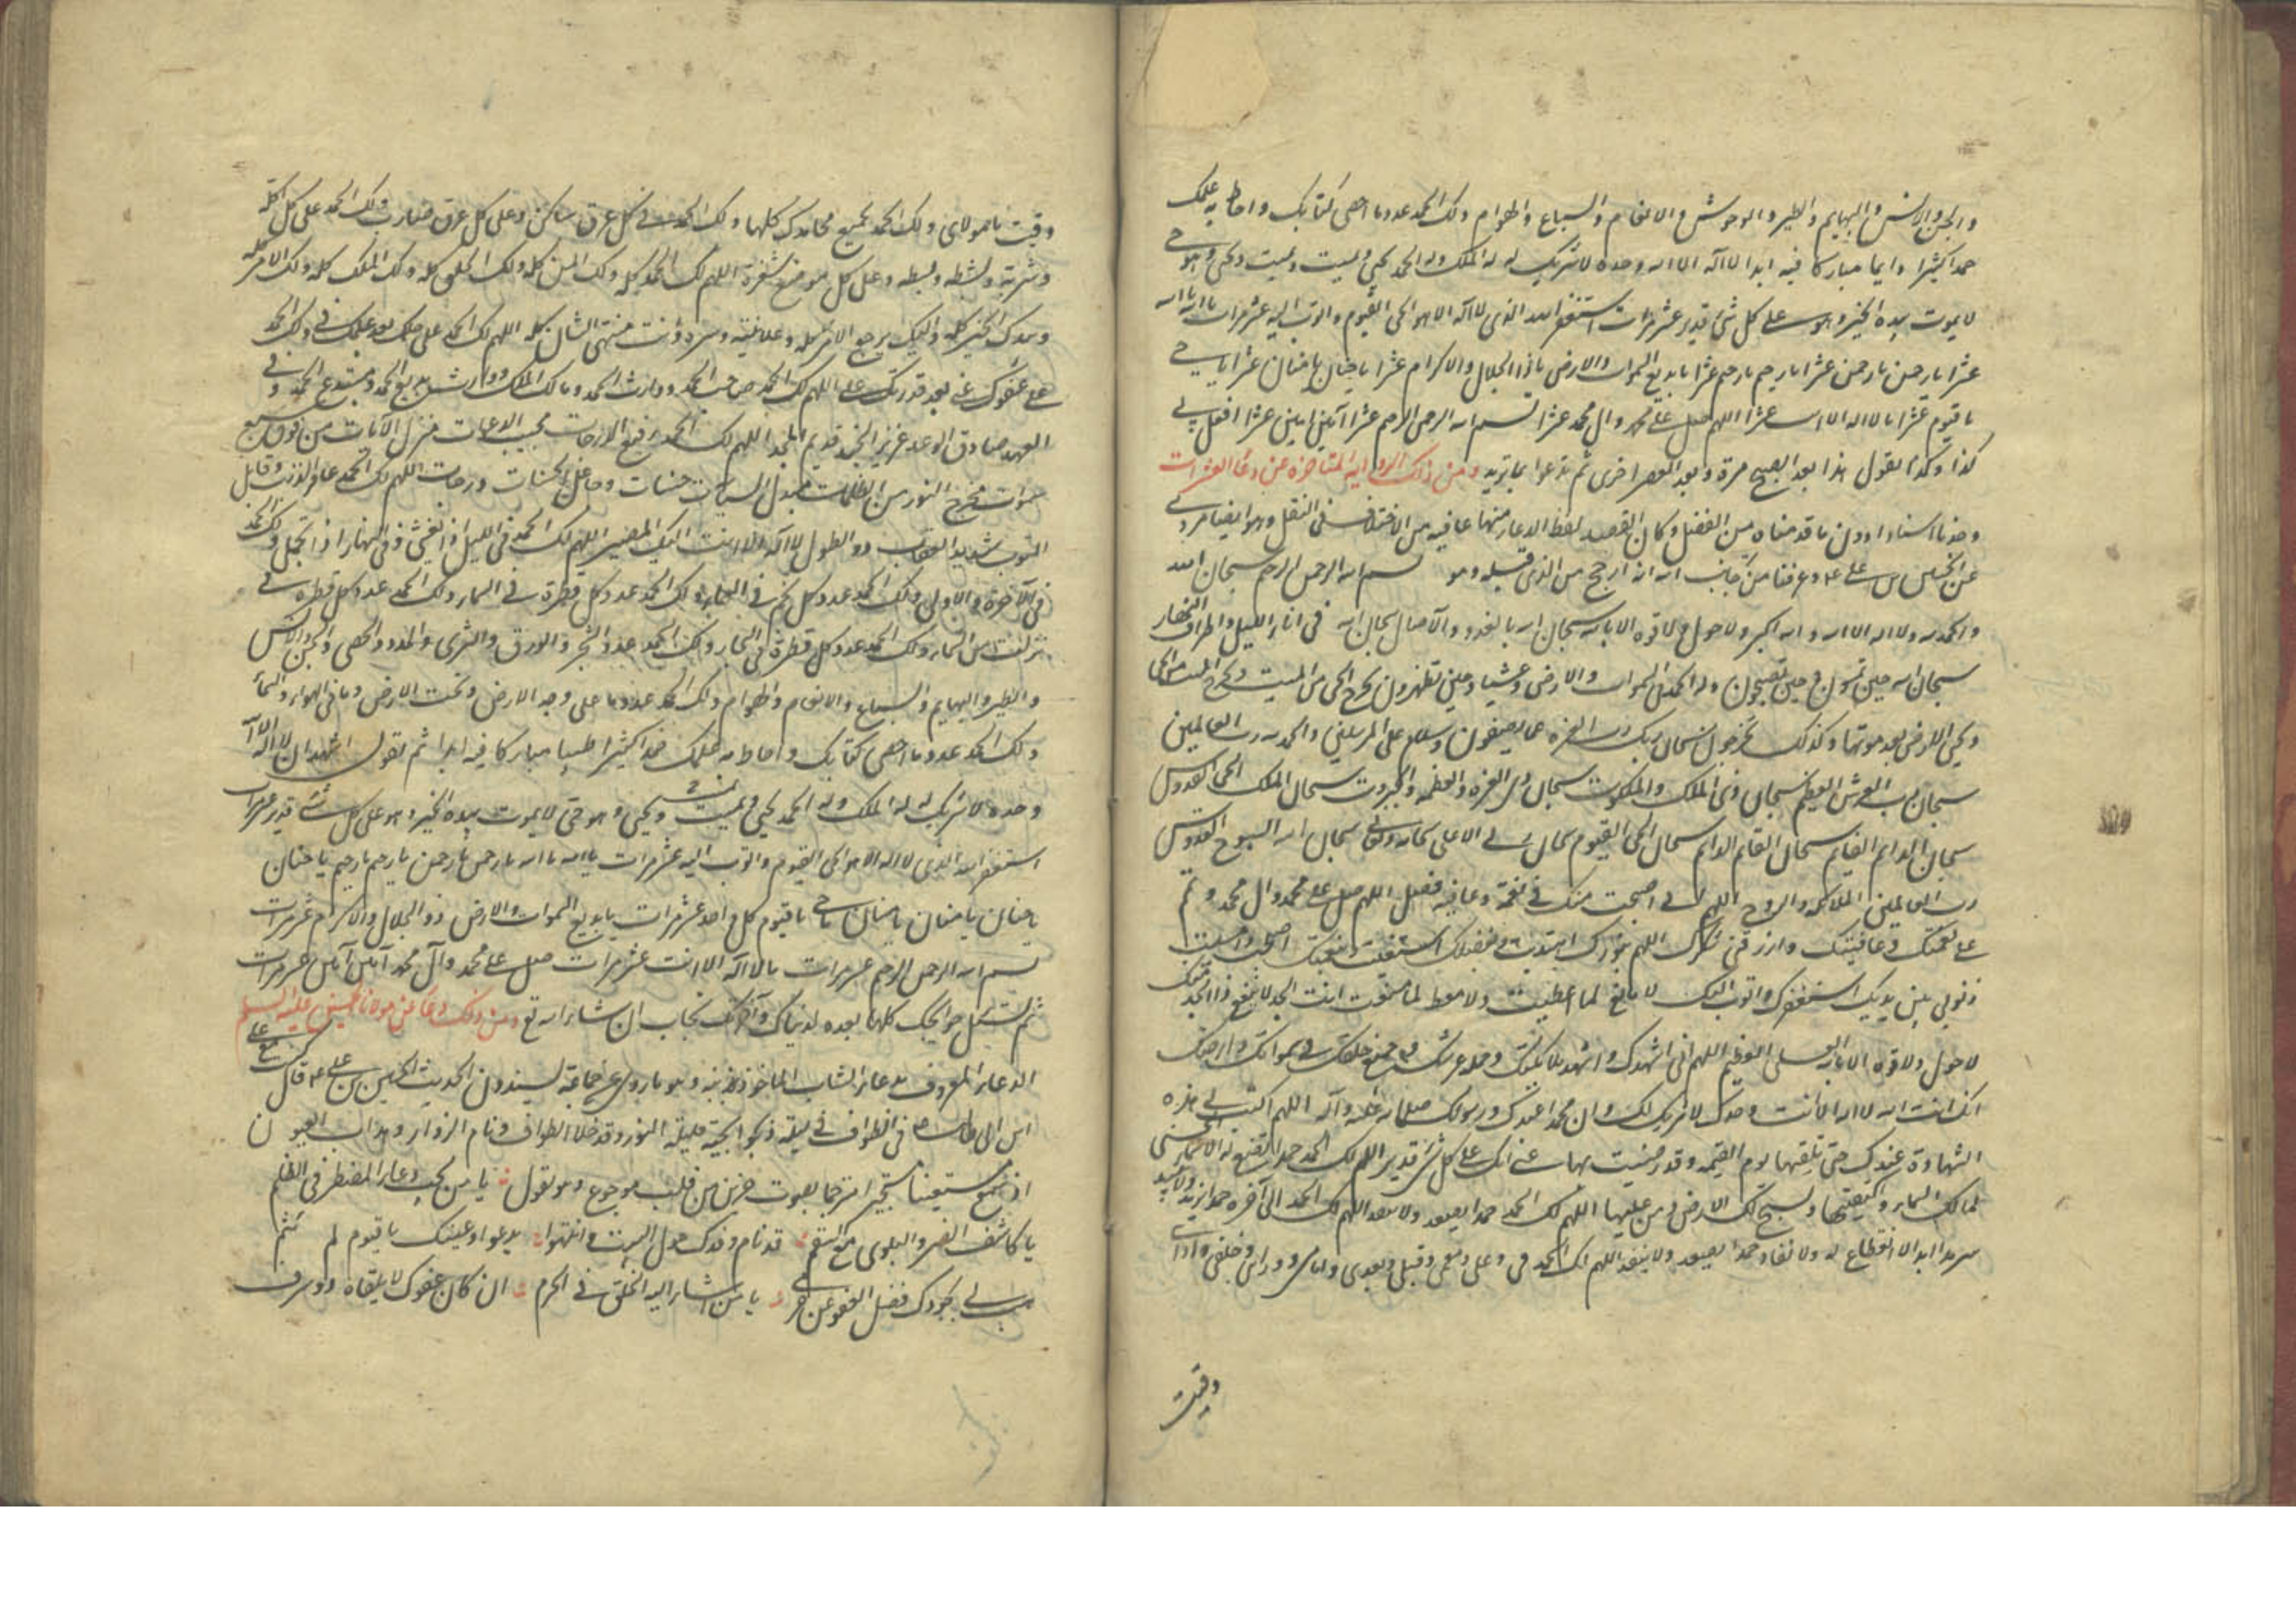 والجن والانس والبهايم والطير والوحوش والانعام والسباع والهوام ولك الحمد عدد ما احصى كتابك واحاط به علمك
حمدا كثيرا دايما مباركا فيه ابدا لا اله الا الله وحده لا شريك له له الملك وله الحمد يحيي ويميت ويميت ويحيي وهو حي
لا يموت بيده الخير وهو على كل شئ قدير عشر مرات استغفر الله الذي لا اله الا هو الحي القيوم واتوب اليه عشر مرات يا الله يا الله
عشرا يا رحمن يا رحمن عشرا يا رحيم يا رحيم عشرا يا بديع السموات والارض يا ذا الجلال والاكرام عشرا يا حنان يا منان عشرا يا حي
يا قيوم عشرا يا لا اله الا انت عشرا اللهم صل على محمد وال محمد عشرا بسم الله الرحمن الرحيم عشرا آمين امين عشرا افعل بي
كذا وكذا تقول هذا بعد الصبح مرة وبعد العصر اخرى ثم تدعوا بما تريد ومن ذلك الرواية المتاخره عن دعا العشرات
وجدنا اسنادا دون ما قدمناه من الفضل وكان القصد لفظ الدعا منها عافيه من الاختلاف في النقل وهو ايضا مروي
عن الحسين بن علي ع وعرفنا من جانب الله انه ارجح من الذي قبله وهو بسم الله الرحمن الرحيم سبحان الله
والحمد لله ولا اله الا الله والله اكبر ولا حول ولا قوه الا بالله سبحان الله بالغدو والآصال سبحان الله في اناء الليل واطراف النهار
سبحان الله حين تمسون وحين تصبحون وله الحمد في السموات والارض وعشيا وحين تظهرون يخرج الحي من الميت ويخرج الميت من الحي
ويحيي الارض بعد موتها وكذلك تخرجون سبحان ربك رب العزه عما يصفون وسلام على المرسلين والحمد لله رب العالمين
سبحان رب العرش العظيم سبحان ذي الملك والملكوت سبحان ذي العزه والعظمه والجبروت سبحان الملك الحي القدوس
سبحان الدايم القايم سبحان القايم الدايم سبحان الحي القيوم سبحان ربي الاعلى سبحانه وتعالى سبحان الله السبوح القدوس
رب العالمين الملائكه والروح اللهم اني اصبحت منك في نعمة وعافيه فصل اللهم صل على محمد وال محمد وتم
علي نعمتك وعافيتك وارزقني شكرك اللهم بنورك اهتديت وبفضلك استغنيت وبنعمتك اصبحت وامسيت
ذنوبي بين يديك استغفرك واتوب اليك لا مانع لما اعطيت ولا معط لما منعت انت الجد لا ينفع ذا الجد منك
لا حول ولا قوه الا بالله العلي العظيم اللهم اني اشهدك واشهد ملائكتك وحمله عرشك وجميع خلقك في سمواتك وارضك
انك انت الله لا اله الا انت وحدك لا شريك لك وان محمدا عبدك ورسولك صلى الله عليه وآله اللهم اكتب لي هذه
الشهادة عندك حتى تلقنيها يوم القيمه وقد رضيت بها عني انك على كل شئ قدير اللهم لك الحمد حمدا تضع له السماء
لك السماء وكنفيها وتسبح لك الارض ومن عليها اللهم لك الحمد حمدا يصعد ولا ينفد اللهم لك الحمد حمدا يزيد ولا يبيد
سرمدا ابدا لا انقطاع له ولا نفاد حمدا يصعد ولا ينفد اللهم لك الحمد في وعلي ومعي وقبلي وبعدي وامامي وورائي وخلفي واذا
وقيت
وقيت يا مولاي ولك الحمد بجميع محامدك كلها ولك الحمد في كل عرق ساكن وعلى كل عرق ضارب ولك الحمد على كل اكلة
وشربة ونشطه وبسطه وعلى كل موضع شعرة اللهم لك الحمد كله ولك المن كله ولك الخلق كله ولك الملك كله ولك الامر كله
وبيدك الخير كله واليك يرجع الامر كله وعلانيته وسره وانت منتهى الشان كله اللهم لك الحمد على حلمك بعد علمك في ولك الحمد
على عفوك عني بعد قدرتك علي اللهم لك الحمد صاحب الحمد ووارث الحمد ومالك الملك ووارث بديع الحمد ومبتدع الحمد وفي
العهد صادق الوعد عزيز الجند قديم المجد اللهم لك الحمد رفيع الدرجات مجيب الدعوات منزل الآيات من فوق سبع
سموات مخرج النور من الظلمات مبدل السيات حسنات وجاعل الحسنات درجات اللهم لك الحمد غافر الذنب وقابل
التوب شديد العقاب ذو الطول لا اله الا انت اليك المصير اللهم لك الحمد في الليل اذا يغشى وفي النهار اذا تجلى ولك الحمد
في الآخرة والاولى ولك الحمد عدد كل نجم في السماء ولك الحمد عدد كل قطرة في السماء ولك الحمد عدد كل قطره
نزلت من السماء ولك الحمد عدد كل قطرة في البحار ولك الحمد عدد الشجر والورق والثرى والمدر والحصى والجن والانس
والطير والبهايم والسباع والانعام والهوام ولك الحمد عدد ما على وجه الارض وتحت الارض وما في الهواء والسماء
ولك الحمد عدد ما احصى كتابك واحاط به علمك حمدا كثيرا طيبا مباركا فيه ابدا ثم تقول اشهد ان لا اله الا الله
وحده لا شريك له له الملك وله الحمد يحيي ويميت ويميت ويحيي وهو حي لا يموت بيده الخير وهو على كل شئ قدير عشر مرات
استغفر الله الذي لا اله الا هو الحي القيوم واتوب اليه عشر مرات يا الله يا الله يا رحمن يا رحمن يا رحيم يا رحيم يا حنان
يا حنان يا منان يا منان يا حي يا قيوم كل واحد عشر مرات يا بديع السموات والارض ذو الجلال والاكرام عشر مرات
بسم الله الرحمن الرحيم عشر مرات يا لا اله الا انت عشر مرات صل على محمد وآل محمد آمين آمين عشر مرات
ثم تسئل حوايجك كلها بعده لدنياك وآخرتك تجاب ان شاء الله تع ومن ذلك دعا عن مولانا الحسين عليه السلم
الدعاء المعروف بدعاء الشاب الماخوذ بذنبه وهو ما روى عن جماعة يسندون الحديث الى الحسين بن علي ع قال كنت مع علي
ابن ابي طالب ع في الطواف في ليلة ديجوجية قليلة النور وقد خلا الطواف ونام الزوار وهدات العيون
اذ سمع مستغيثا مستجيرا مترحما بصوت حزين من قلب موجوع وهو يقول يا من يجيب دعاء المضطر في الظلم
يا كاشف الضر والبلوى مع السقم قد نام وفدك حول البيت وانتبهوا يدعوا وعينك يا قيوم لم تنم
هب لي بجودك فضل العفو عن جرمي يا من اشار اليه الخلق في الحرم ان كان عفوك لا يلقاه ذو سرف